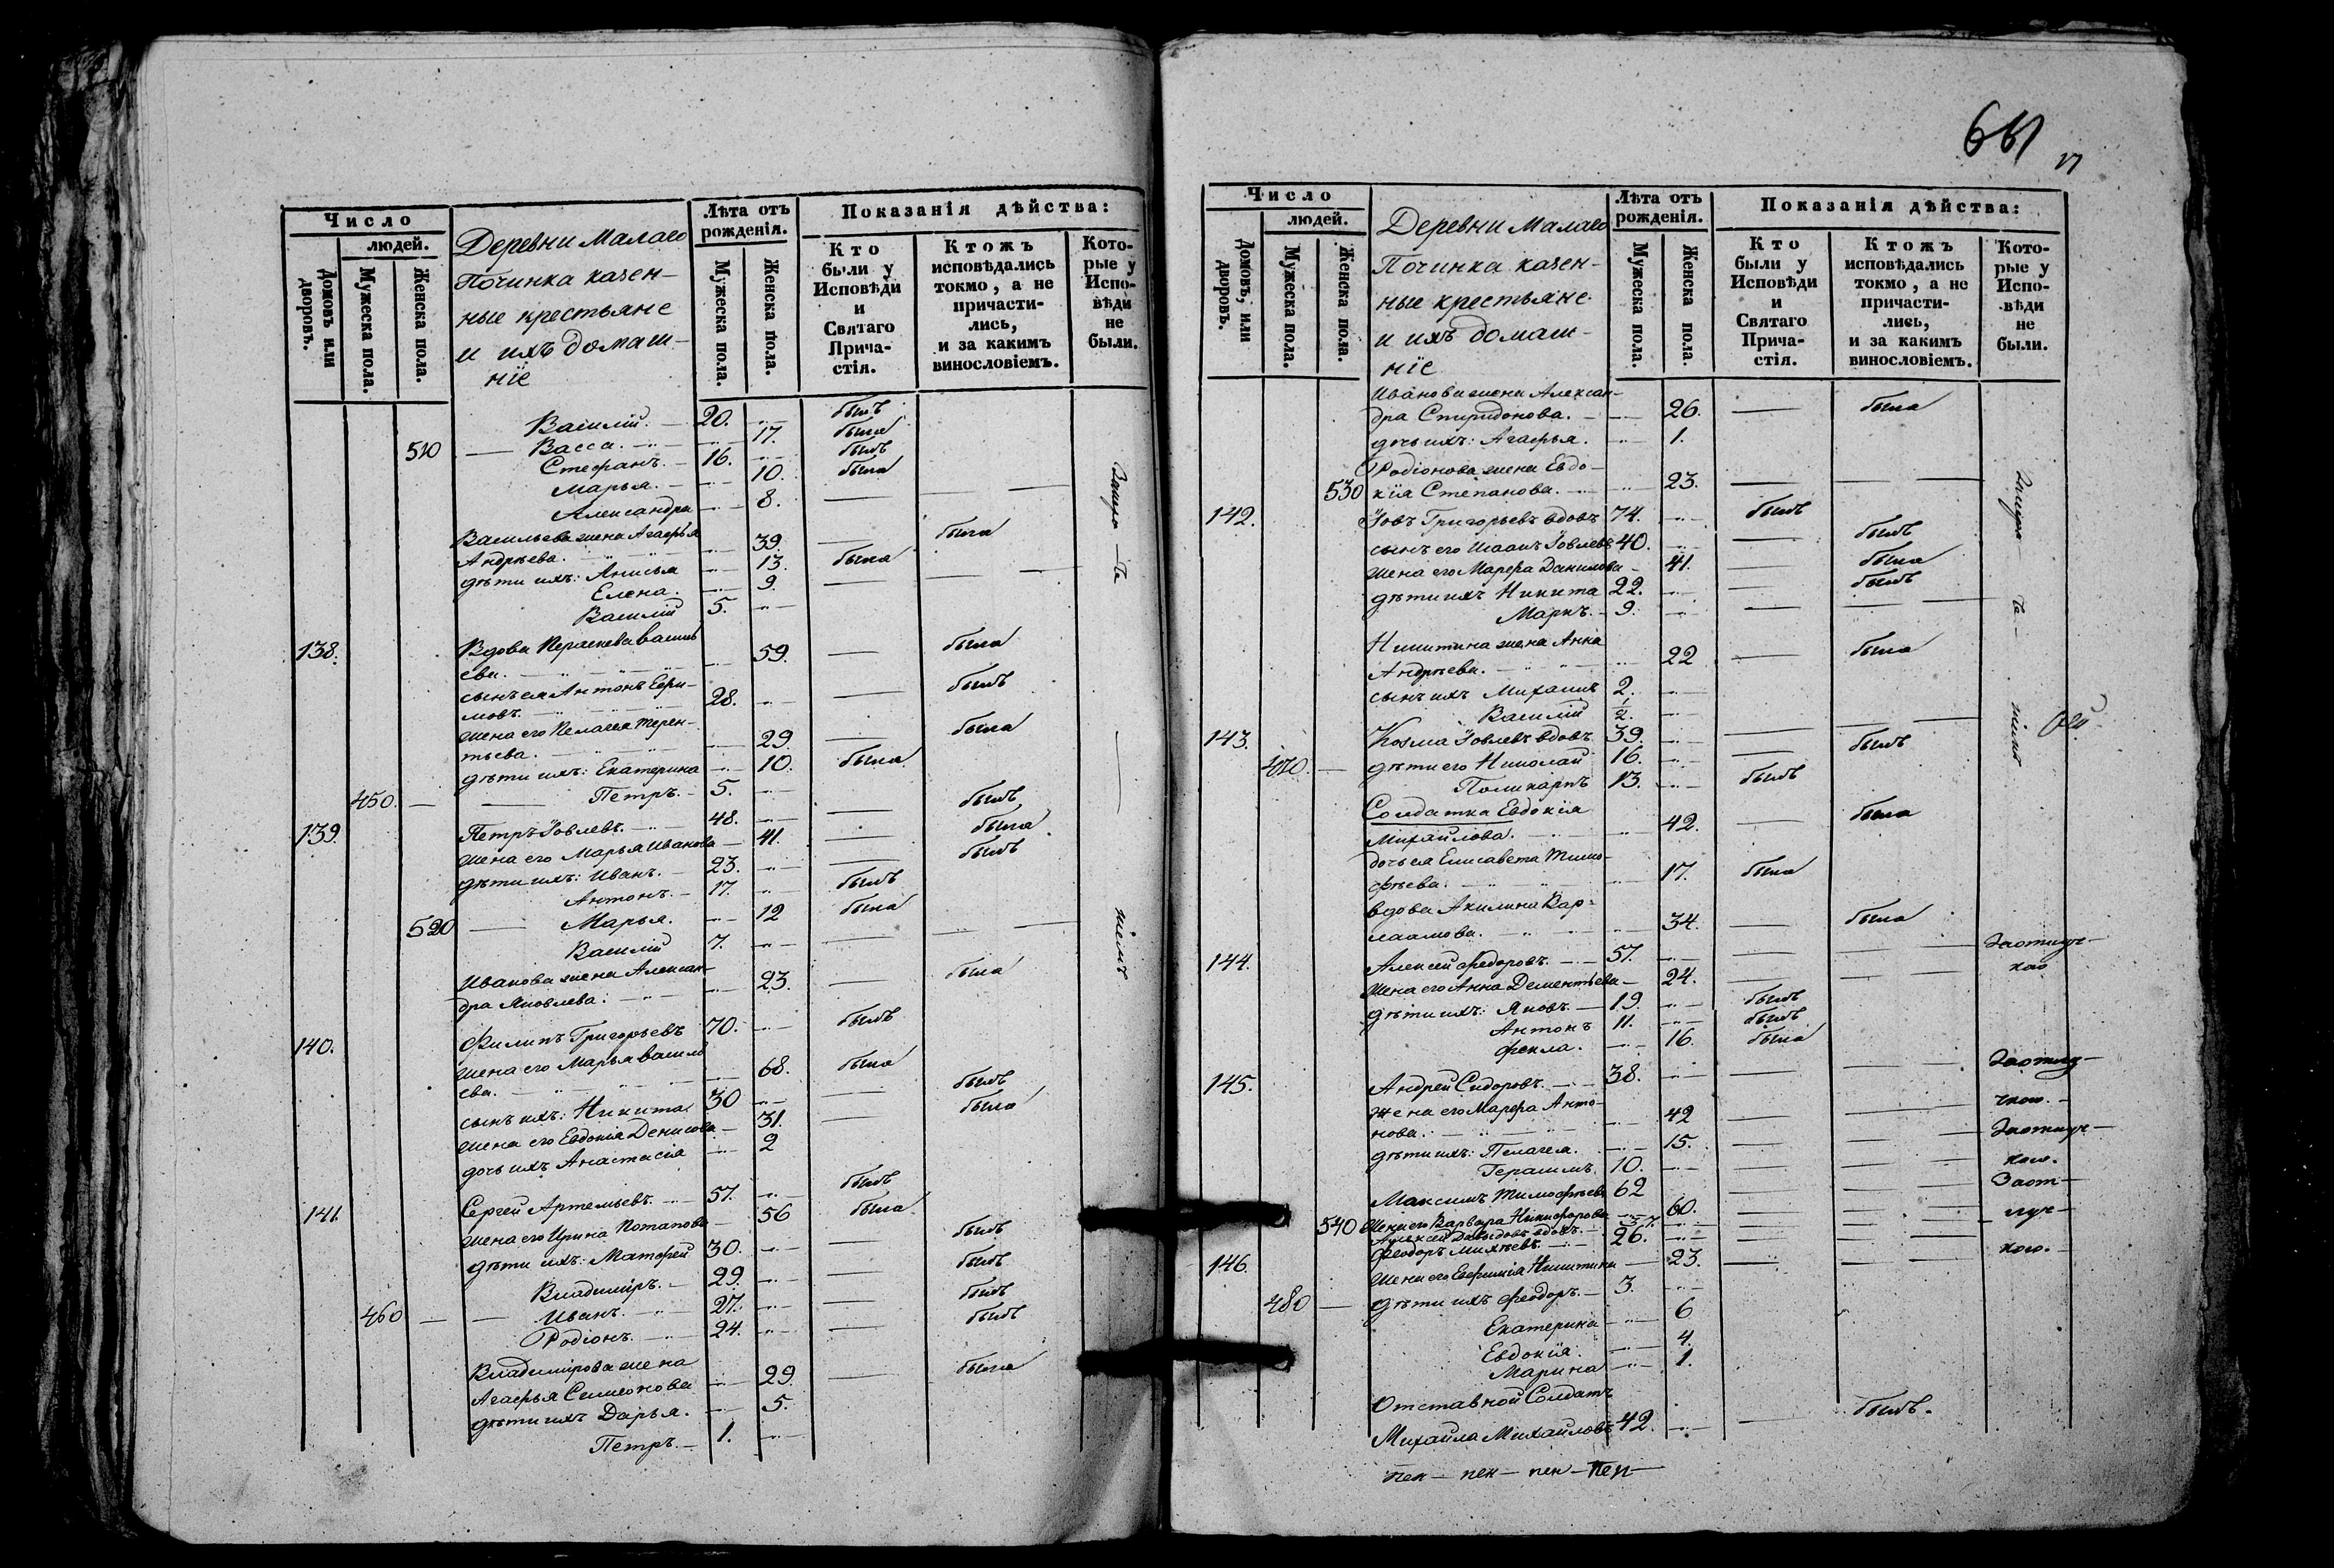 Число
людей.
Домовъ или дворовъ.
Мужеска пола.
Женска пола.
Деревни Малаго
Починка казен-
ные крестьяне
и ихъ домаш-
нїе
Лѣта отъ рожденія.
Мужеска пола.
Женска пола.
Показанія дѣйства:
Кто были у Исповѣди и Святаго Прича-стія.
Ктожъ исповѣдались токмо, а не причасти-лись, и за какимъ винословіемъ.
Кото-рые у Испо-вѣди не были.
Василій. 20. былъ
510 Васса. 17. была
Стефанъ. 16. былъ
Марья. 10. была
Александра 8.
Васильева жена Агафья
Андрѣева. 39. была
дѣти ихъ: Анисья 13. была
Елена. 9.
Василій 5.
138. Вдова Параскева Василь
ева. 59. была
сынъ ея Антонъ Ефи-
мовъ. 28. былъ
жена его Пелагея Терен-
тьева. 29. была
дѣти ихъ: Екатерина 10. была
450. Петръ. 5.
139. Петръ Іовлевъ. 48. былъ
жена его Марья Иванова 41. была
дѣти ихъ: Иванъ. 23. былъ
Антонъ. 17. былъ
520 Марья. 12 была
Василій 7.
Иванова жена Алексан-
дра Яковлева. 23. была
140. Филипъ Григорьевъ 70. былъ
жена его Марья Василь
ева. 68. была
сынъ ихъ: Никита 30 былъ
жена его Евдокія Денисова 31. была
дочь ихъ Анастасія 2
141. Сергей Артемьевъ. 57. былъ
жена его Ирина Потапова 56 была
дѣти ихъ: Матфей 30. былъ
Владиміръ. 29. былъ
460 Иванъ. 27. былъ
Родіонъ. 24. былъ
Владимірова жена
Агафья Семенова 29. была
дѣти ихъ Дарья. 5.
Петръ. 1.
681
17
Число
людей.
Домовъ, или дворовъ.
Мужеска пола.
Женска пола.
Деревни Малаго
Починка казен-
ные крестьяне
и ихъ домаш-
нїе
Лѣта отъ рожденія.
Мужеска пола.
Женска пола.
Показанія дѣйства:
Кто были у Исповѣди и Святаго Прича-стія.
Ктожъ исповѣдались токмо, а не причасти-лись, и за какимъ винословіемъ.
Кото-рые у Испо-вѣди не были.
Иванова жена Алексан-
дра Спиридонова. 26. была
дочь ихъ: Агафья. 1.
Родіонова жена Евдо-
530 кїа Степанова. 23.
142. Іовъ Григорьевъ вдовъ 74. былъ
сынъ его Исаакъ Іовлевъ 40. былъ
жена его Марфа Данилова 41. была
дѣти ихъ Никита 22. былъ
Маркъ. 9.
Никитина жена Анна
Андрѣева. 22 была
сынъ ихъ Михаилъ 2.
Василій 1/2.
143. Козма Іовлевъ вдовъ 39.
470. дѣти его Николай 16. былъ
Поликарпъ 13. былъ
Солдатка Евдокїя
Михайлова. 42. была
дочь ея Елисавета Тимо-
фѣева. 17. была
вдова Акилина Вар-
лаамова. 34. была
144. Алексей Федоровъ. 57.
жена его Анна Дементьева 24.
дѣти ихъ: Яковъ. 19. былъ
Антонъ 11. былъ
Фекла. 16. была
145. Андрей Сидоровъ. 38.
Жена его Марфа Анто-
нова. 42
дѣти ихъ: Пелагея. 15.
Герасимъ. 10.
Максимъ Тимофѣевъ 62
540 Жена его Варвара Никифорова 60.
Алексей Давыдовъ вдовъ. 37.
146. Феодоръ Михѣевъ. 26.
Жена его Евфимія Никитина 23.
480 дѣти ихъ Феодоръ. 3.
Екатерина 6
Евдокїя. 4.
Марина 1.
Отставной Солдатъ
Михайла Михайловъ 42. былъ.